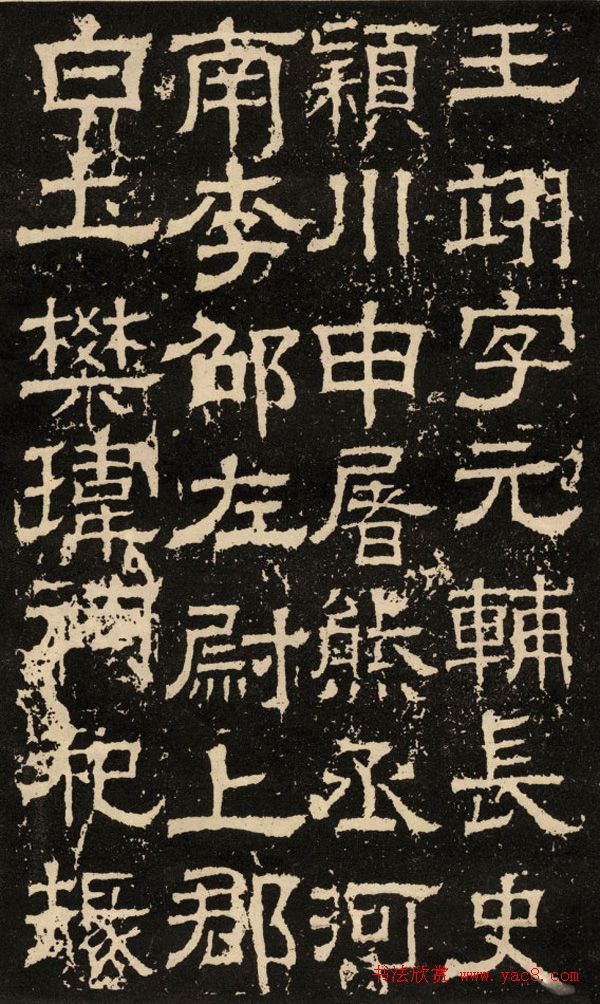 王翊字元輔長史
穎川申屠熊丞河
南李邵左尉上郡
白土樊瑋祠祀掾
书法欣赏 www.yac8.com